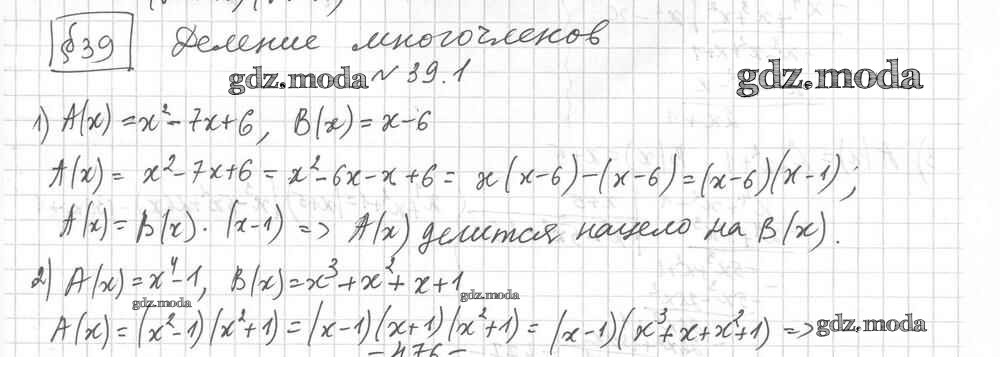 §39 Деление многочленов
gdz.moda № 39.1 gdz.moda
1) A(x) = x² - 7x + 6, B(x) = x - 6
A(x) = x² - 7x + 6 = x² - 6x - x + 6 = x(x-6) - (x-6) = (x-6)(x-1);
A(x) = B(x) · (x-1) => A(x) делится нацело на B(x).
2) A(x) = x⁴ - 1, B(x) = x³ + x² + x + 1
gdz.moda gdz.moda
A(x) = (x²-1)(x²+1) = (x-1)(x+1)(x²+1) = (x-1)(x³+x+x²+1) =>
gdz.moda
- 476 -